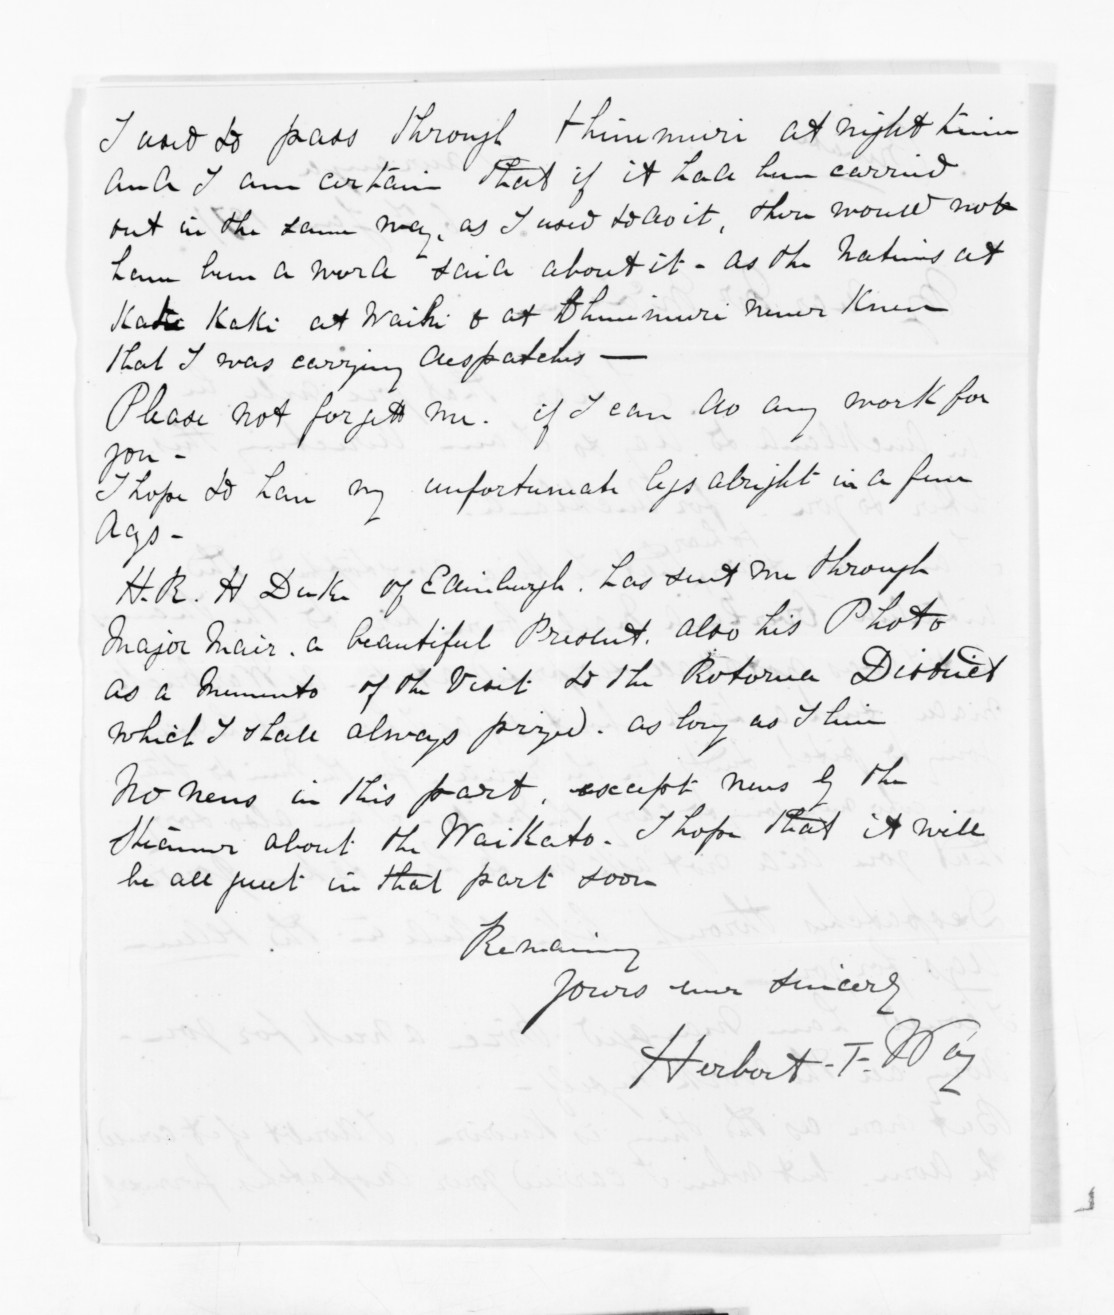 I used to pass through Ohinemuri at night time
and I am certain that if it had been carried
out in the same way, as I used to do it, there would not
have been a word said about it - as the Natives at
Kati Kati at Waihi & at Ohinemuri never knew
that I was carrying despatches —
Please not forgett me. if I can do any work for
you -
I hope to have my unfortunate legs alright in a few
days -
H.R.H Duke of Edinburgh. has sent me through
Major Mair. a beautiful Present. also his Photo
as a Memento of the Visit to the Rotorua District
which I shall always prized. as long as I live
No news in this part, except news by the
Steamer about the Waikato. I hope that it will
be all quiet in that part soon
Remaining
Yours ever sincerely
Herbert. T. Way